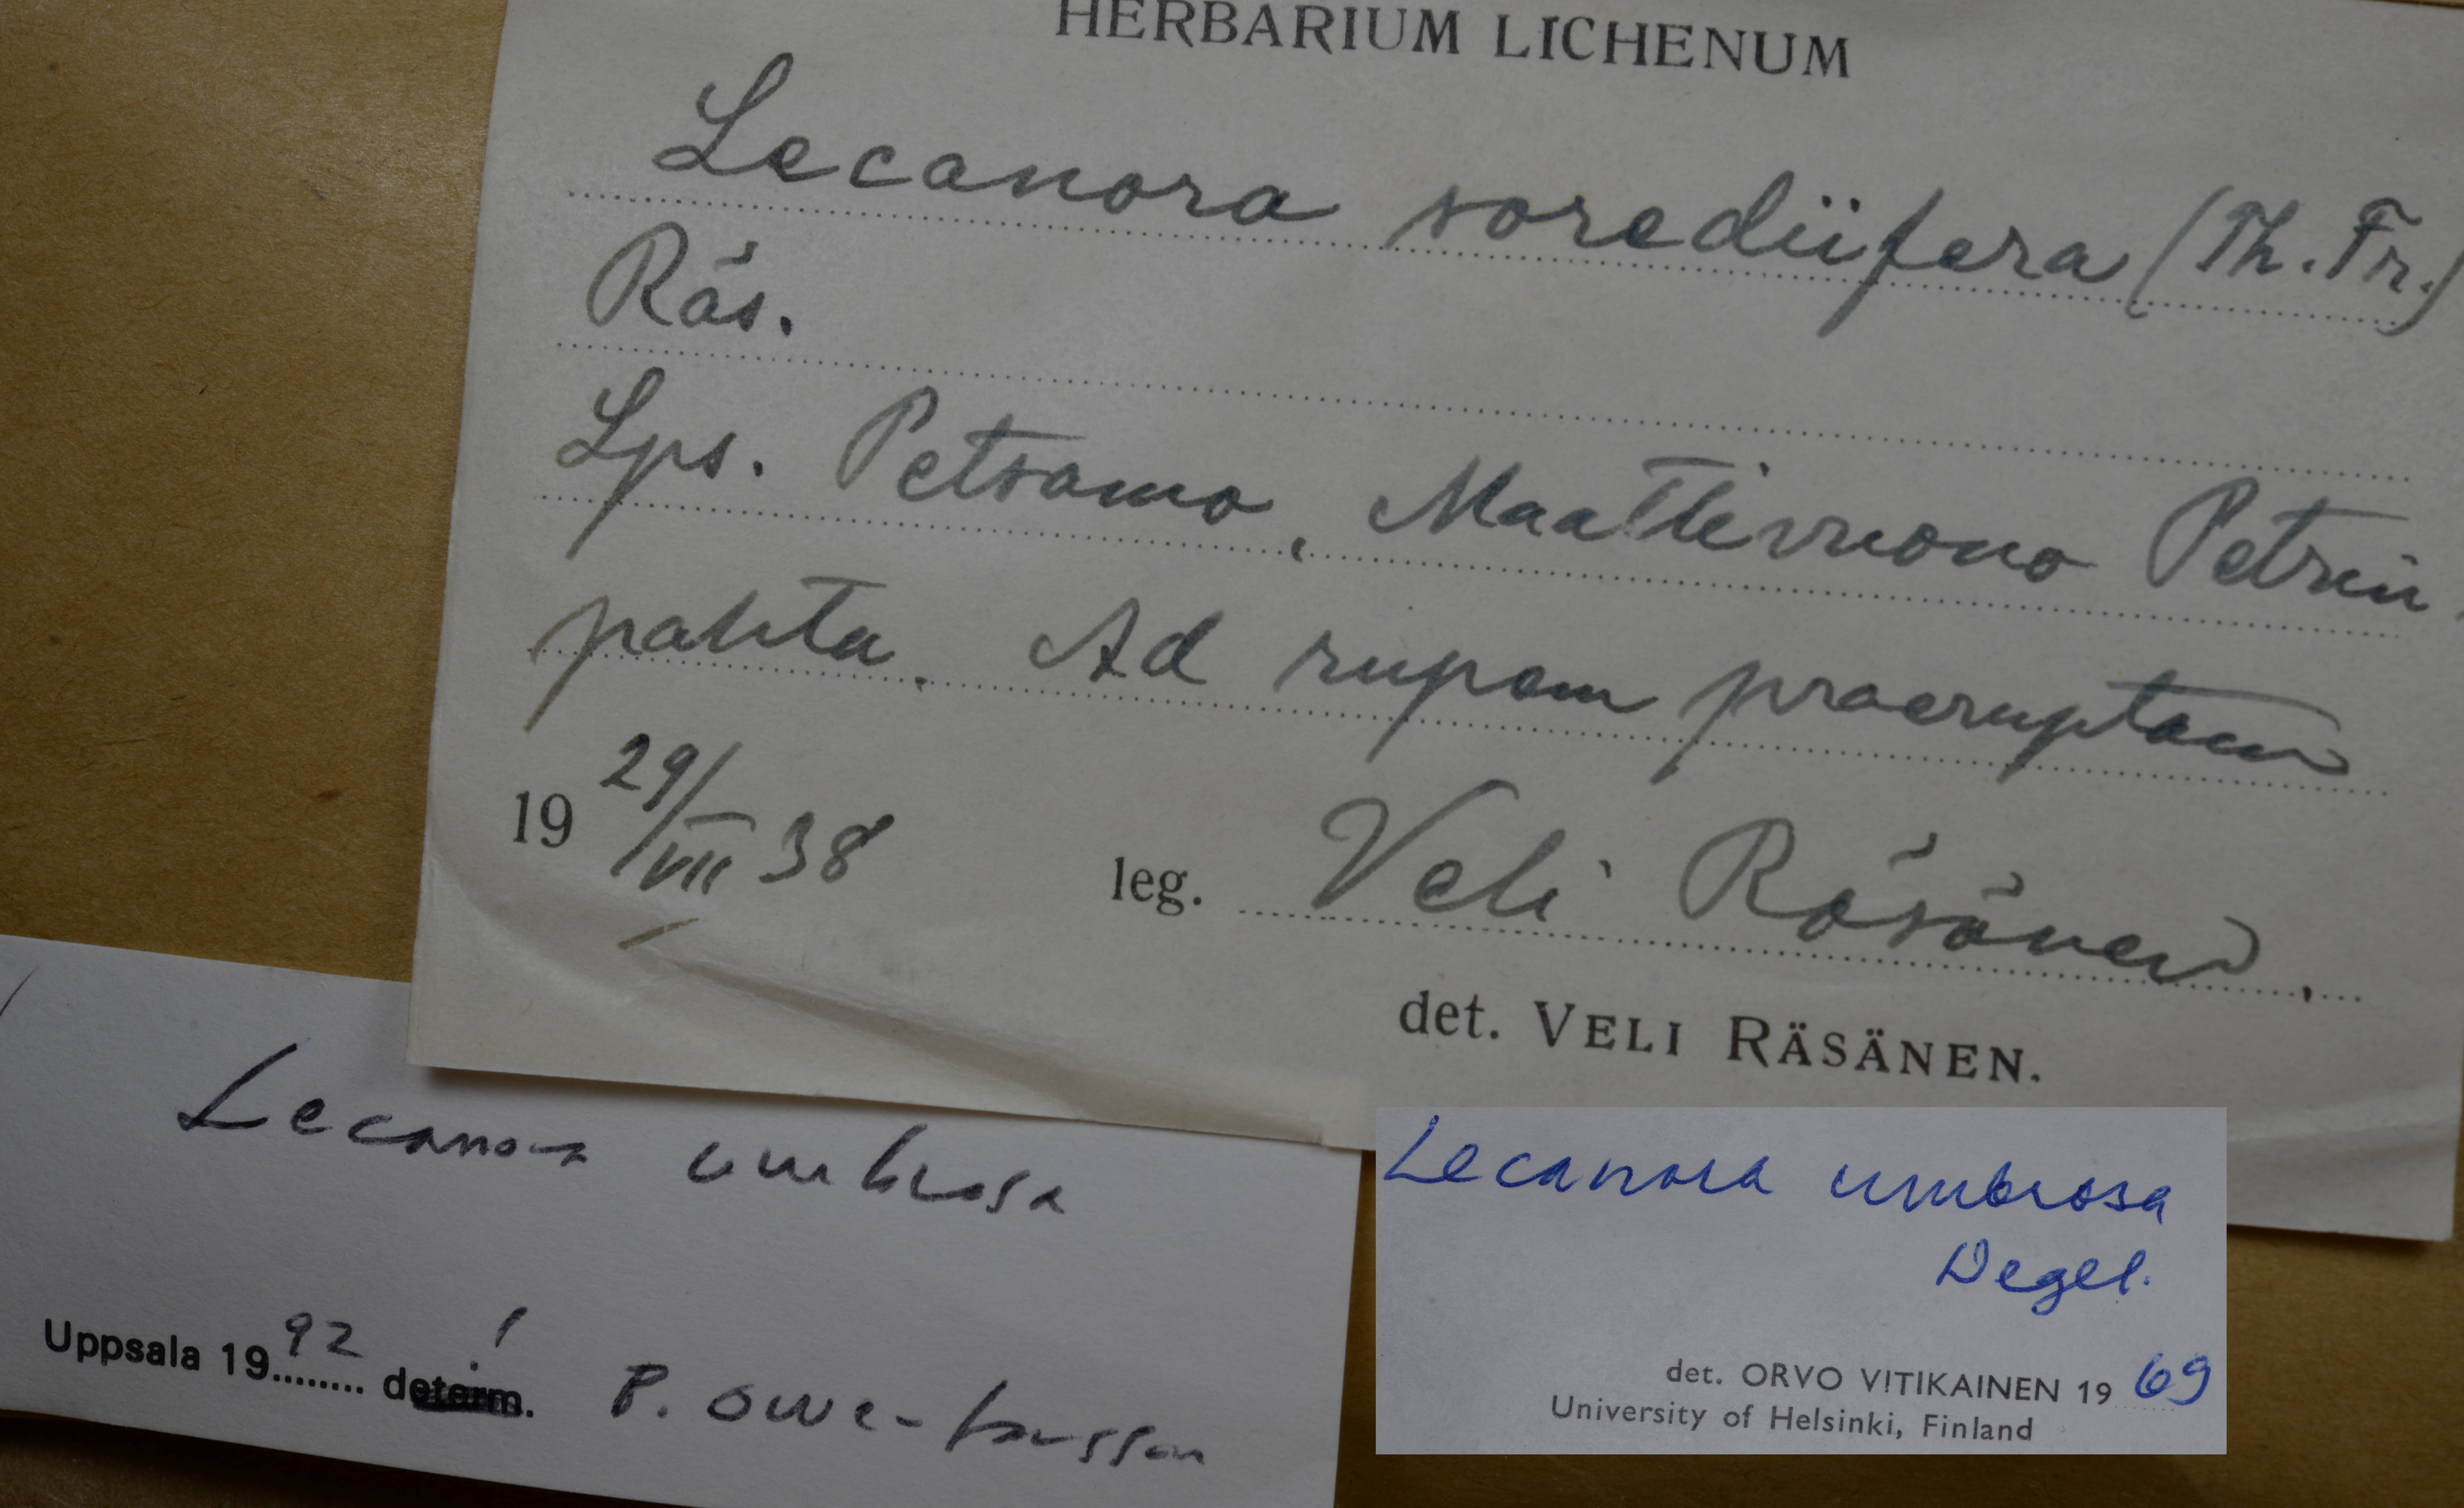 HERBARIUM LICHENUM
Lecanora sorediifera (Th. Fr.)
Räs.
Lps. Petsamo, Maattivuono Petrin
pahta. Ad rupem praeruptam
19 29/VII 38 leg. Veli Räsänen.
det. VELI RÄSÄNEN.
Lecanora umbrosa
Uppsala 19 92 determ. ! P. Owe-Larsson
Lecanora umbrosa
Degel.
det. ORVO VITIKAINEN 19 69
University of Helsinki, Finland